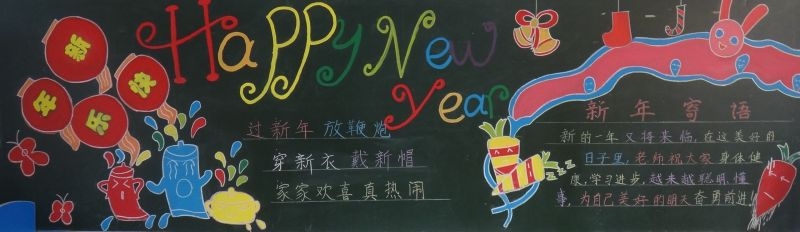 新年快乐
HaPPy New
Year
过新年 放鞭炮
穿新衣 戴新帽
家家欢喜真热闹
新年寄语
新的一年又将来临,在这美好的
日子里,老师祝大家身体健
康,学习进步,越来越聪明、懂
事,为自己美好的明天奋勇前进!
ZZZ